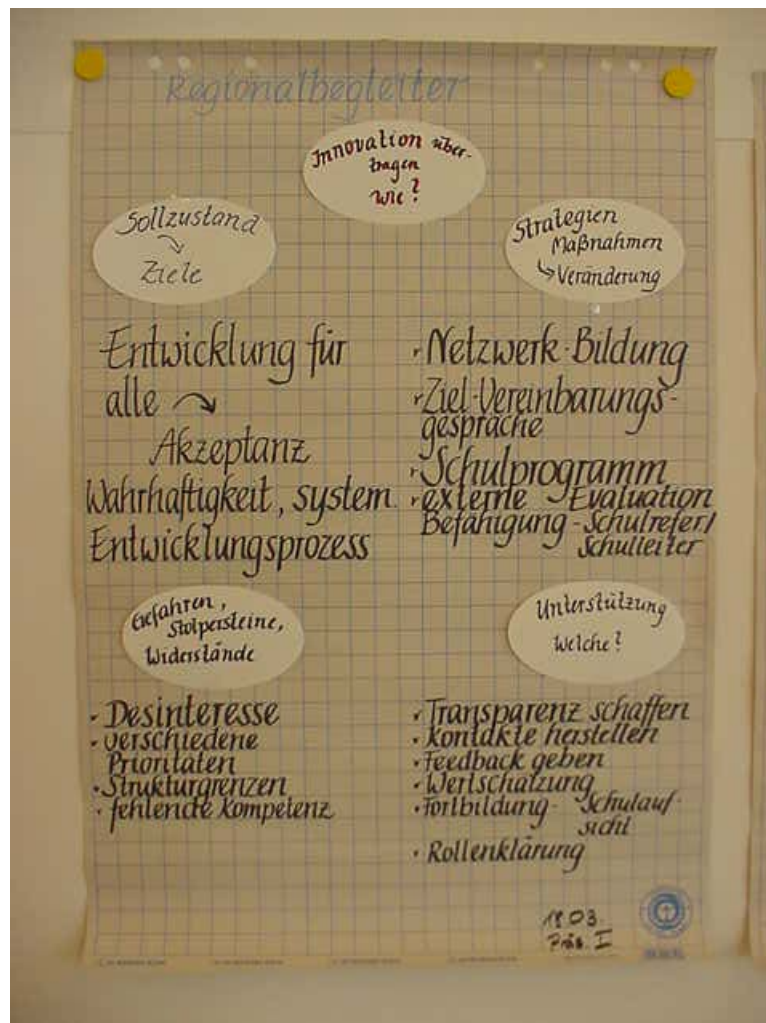 Regionalbegleiter
Innovation über-
tragen
wie?
Sollzustand
Ziele
Strategien
Maßnahmen
Veränderung
Entwicklung für
alle
Akzeptanz
Wahrhaftigkeit, system.
Entwicklungsprozess
Netzwerk-Bildung
Ziel-Vereinbarungs-
gespräche
Schulprogramm
externe Evaluation
Befähigung - Schulrefer/
Schulleiter
Gefahren,
Stolpersteine,
Widerstände
Desinteresse
verschiedene
Prioritäten
Strukturgrenzen
fehlende Kompetenz
Unterstützung
Welche?
Transparenz schaffen
Kontakte herstellen
Feedback geben
Wertschätzung
Fortbildung - Schulauf-
sicht
Rollenklärung
18.03.
I